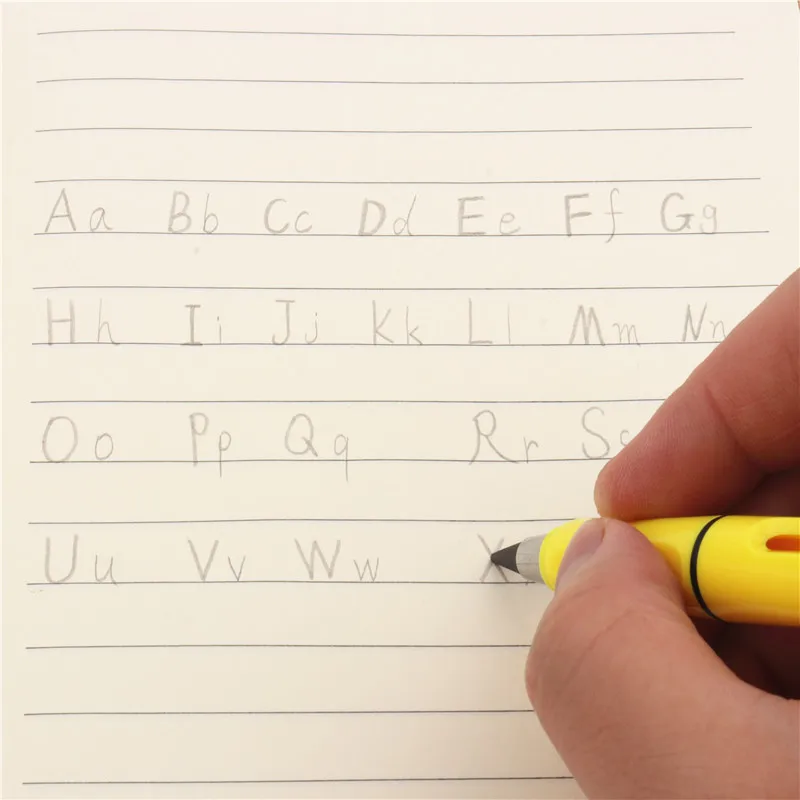 Aa Bb Cc Dd Ee Ff Gg
Hh Ii Jj Kk Ll Mm Nn
Oo Pp Qq Rr Ss
Uu Vv Ww X